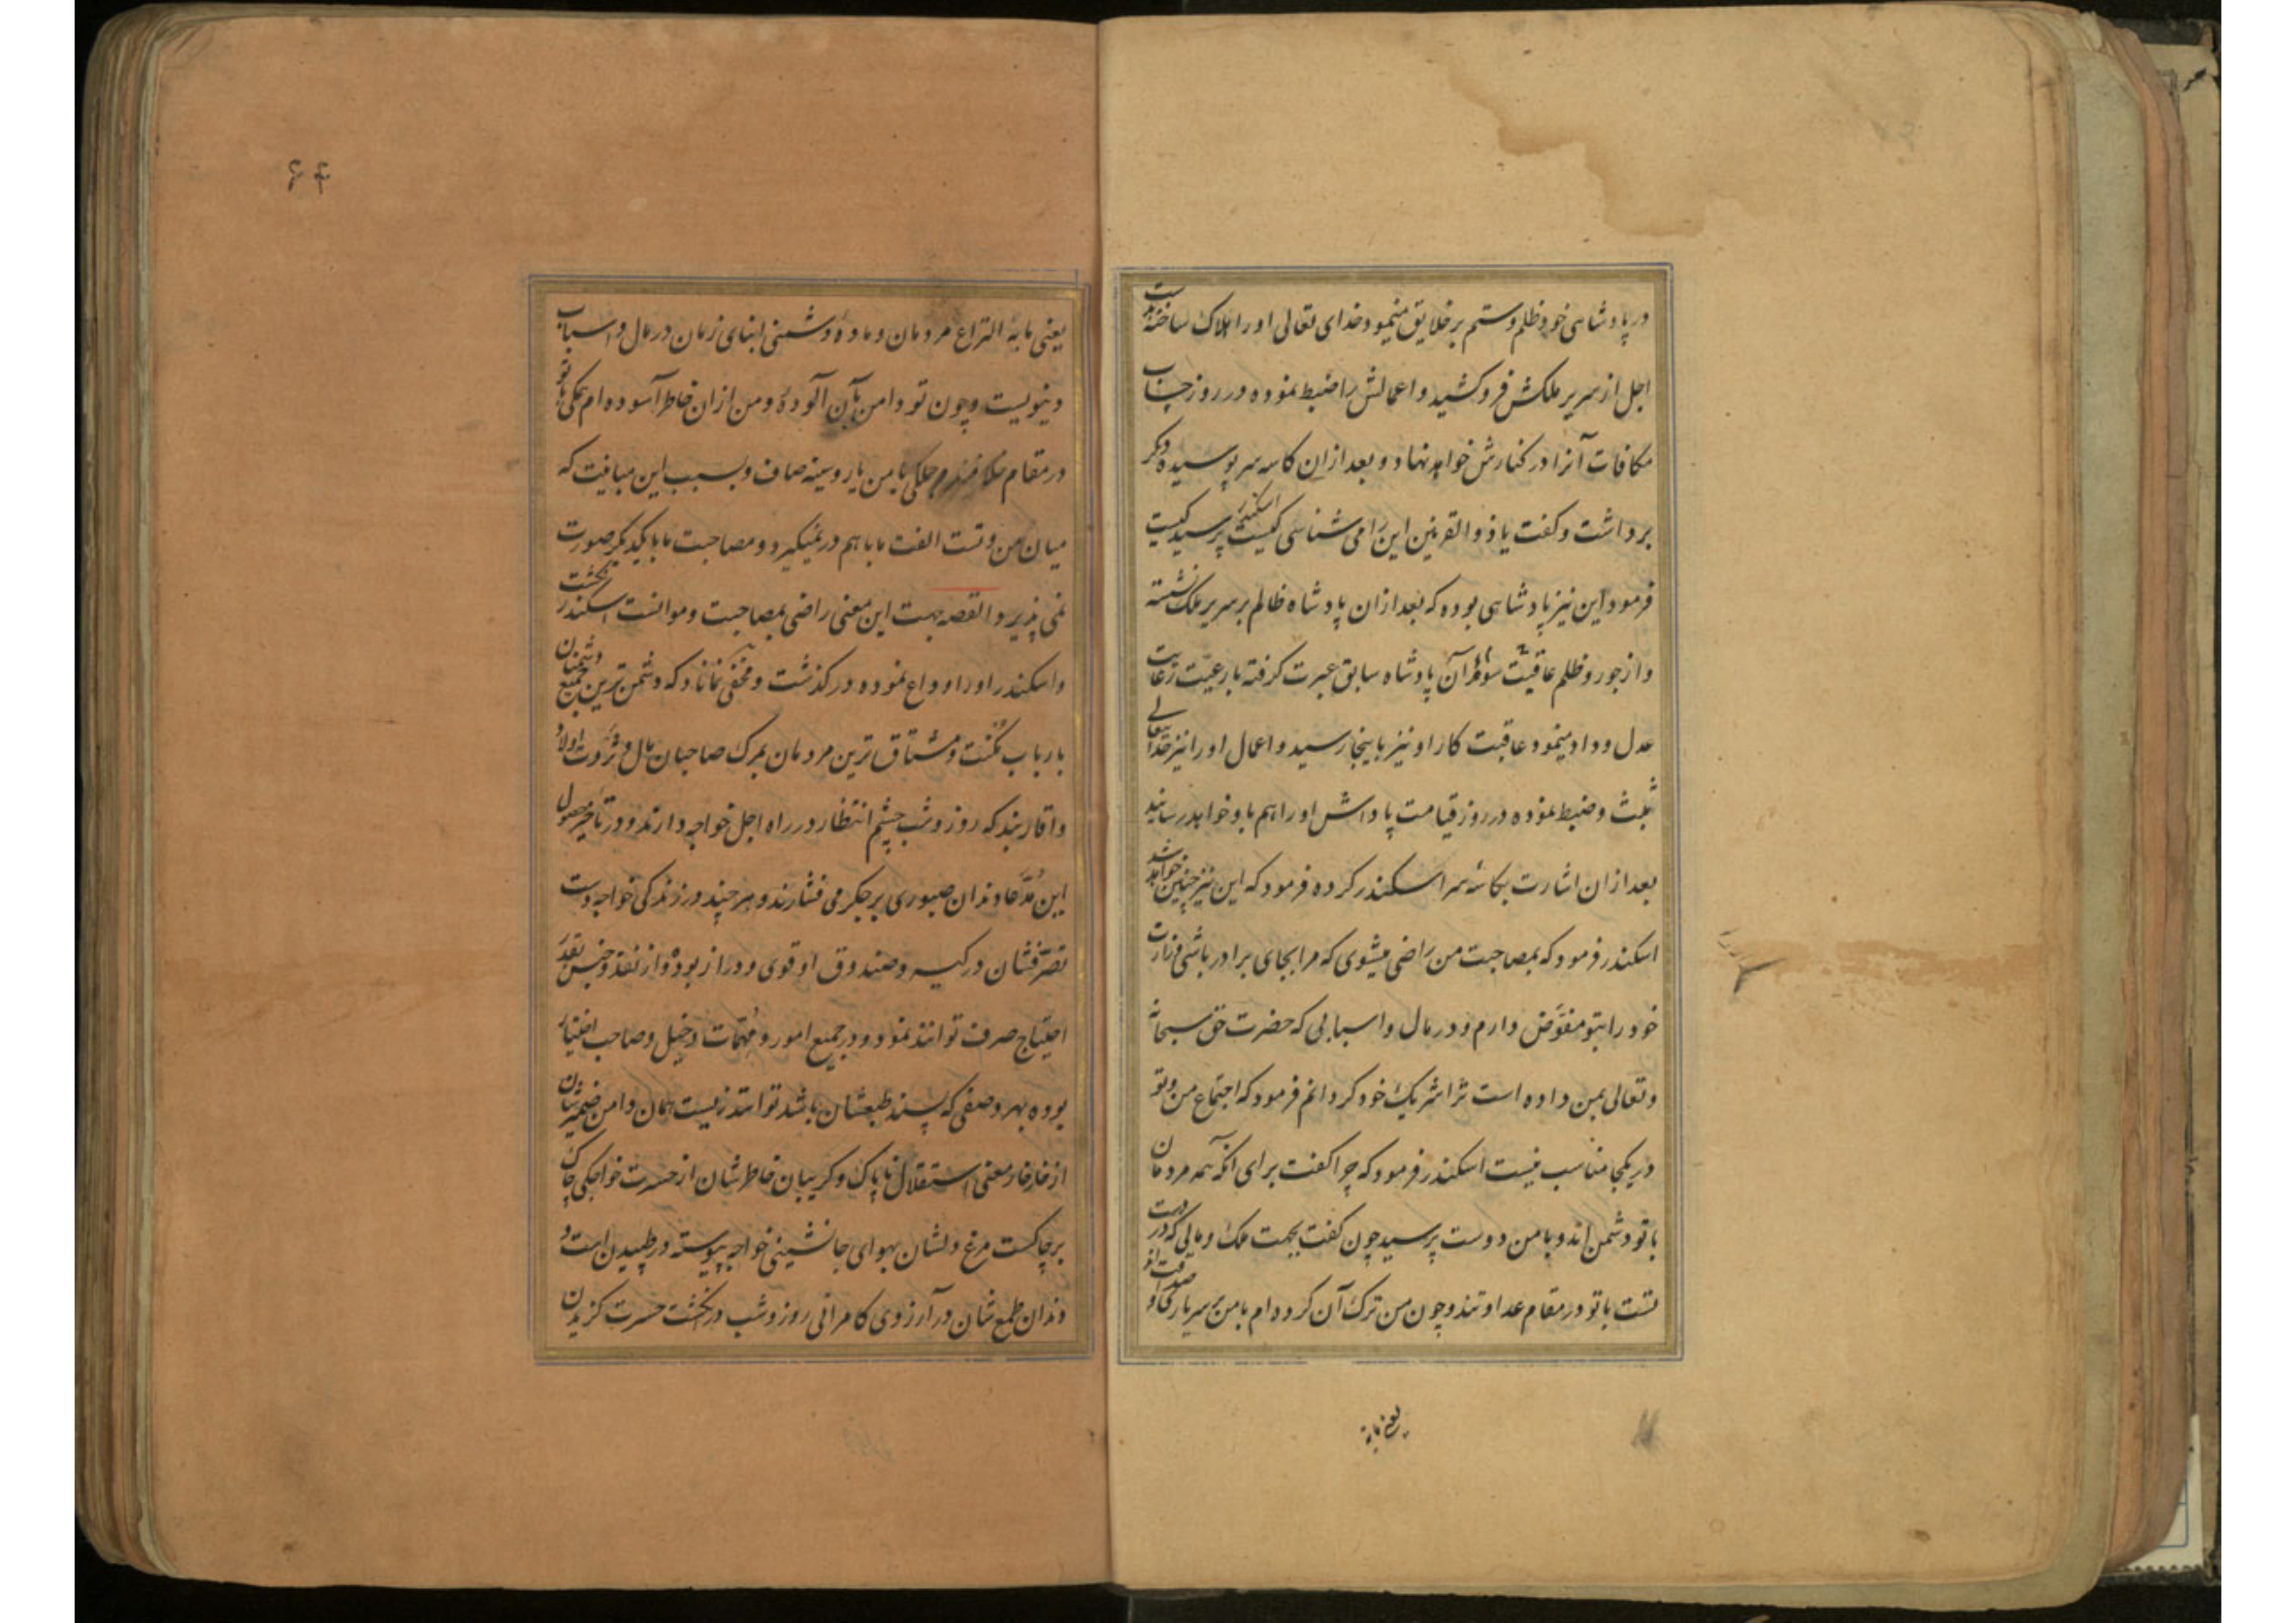 در پادشاهی خود ظلم و ستم بر خلایق مینمود خدای تعالی او را هلاک ساخته دست
اجل از سریر ملکش فرو کشید و اعمالش را ضبط نموده در روز حساب
مکافات آنرا در کنارش خواهد نهاد و بعد ازان کاسه سر پوسیده دیگر
برداشت و گفت یا ذوالقرنین این را می شناسی کیست اسکندر پرسید کیست
فرمود این نیز پادشاهی بوده که بعد ازان پادشاه ظالم بر سریر ملک نشسته
و از جور و ظلم عاقبت آن پادشاه سابق عبرت گرفته با رعیت رعایت
عدل و داد مینمود عاقبت کار او نیز باینجا رسید و اعمال او را نیز خدایتعالی
ثبت و ضبط نموده در روز قیامت پاداش او را هم باو خواهد رسانید
بعد ازان اشارت بکاسهٔ سر اسکندر کرده فرمود که این نیز چنین خواهد شد
اسکندر فرمود که بمصاحبت من راضی میشوی که مرا بجای برادر باشی وزارت
خود را بتو مفوّض دارم و در مال و اسبابی که حضرت حق سبحانه
و تعالی بمن داده است ترا شریک خود گردانم فرمود که اجتماع من و تو
در یکجا مناسب نیست اسکندر فرمود که چرا گفت برای آنکه همه مردمان
با تو دشمن اند و با من دوست پرسید چون گفت بجهت ملک و مالی که در دست
تست با تو در مقام عداوتند و چون من ترک آن کرده ام با من بر سر یاری و صداقت اند
یعنی مایهٔ
۶۴
یعنی مایهٔ النزاع مردمان و مادهٔ دشمنی ابنای زمان در مال و اسباب
دنیویست و چون تو دامن بآن آلودهٔ و من ازان خاطر آسوده ام همگی با تو
در مقام و جملگی با من یار و سینه صاف و بسبب این مباینت که
میان من و تست الفت ما با هم در نمیگیرد و مصاحبت ما با یکدیگر صورت
نمی پذیرد القصه جهت این معنی راضی بمصاحبت و موانست اسکندر نگشت
و اسکندر او را وداع نموده در گذشت و مخفی نماناد که دشمن ترین جمیع دشمنان
بارباب مکنت و مشتاق ترین مردمان بمرگ صاحبان مال و ثروت اولاد
و اقاربند که روز و شب چشم انتظار در راه اجل خواجه دارند و در تاخیر حصول
این مدّعا دندان صبوری بر جگر می فشارند و هر چند در زندگی خواجه دست
تصرّفشان در کیسه و صندوق او قوی و دراز بوده و از نقد و جنس بقدر
احتیاج صرف توانند نمود و در جمیع امور و مهمّات دخیل و صاحب اختیار
بوده بهر وصفی که پسند طبعشان باشد توانند زیست همان دامن ضمیرشان
از خار خار معنی استقلال ناپاک و گریبان خاطرشان از حسرت خواجگی چاک
بر چاکست مرغ دلشان بهوای جانشینی خواجه پیوسته در طپیدن است و
دندان طمعشان در آرزوی کامرانی روز و شب در انگشت حسرت گزیدن